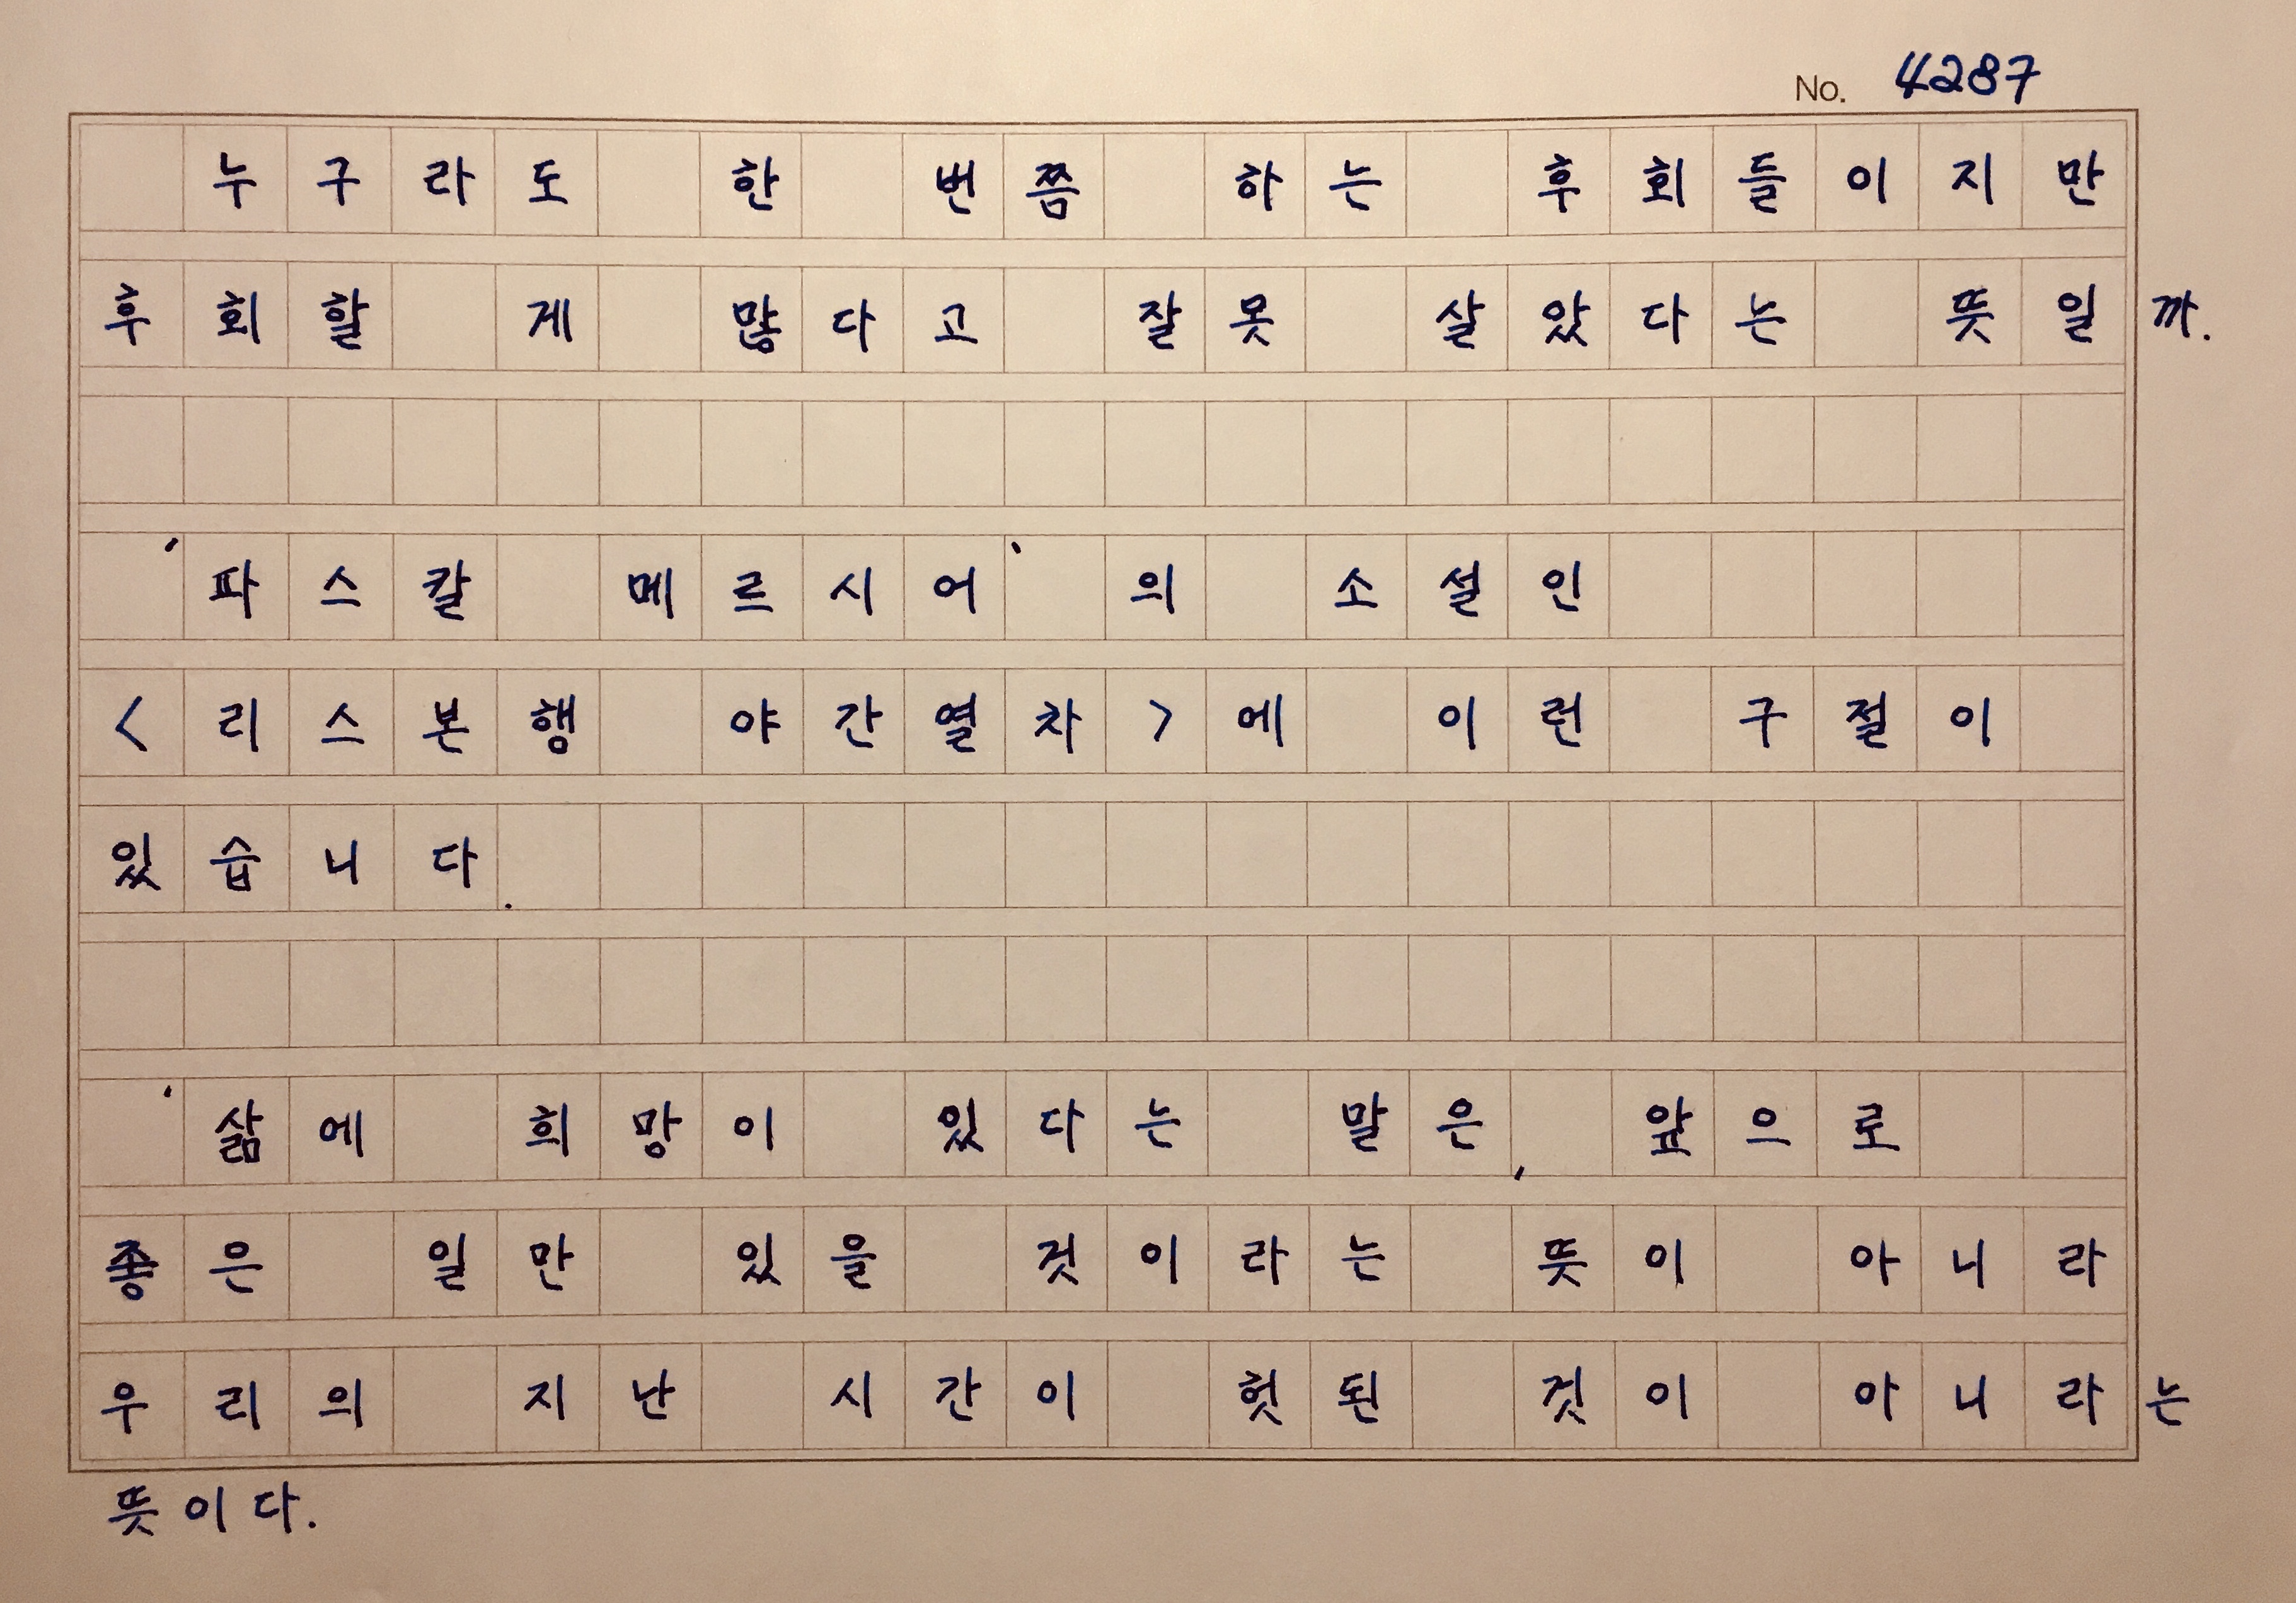 No. 4287
누구라도 한 번쯤 하는 후회들이지만
후회할 게 많다고 잘못 살았다는 뜻일까.
'파스칼 메르시어'의 소설인
<리스본행 야간열차>에 이런 구절이
있습니다.
'삶에 희망이 있다는 말은, 앞으로
좋은 일만 있을 것이라는 뜻이 아니라
우리의 지난 시간이 헛된 것이 아니라는
뜻이다.